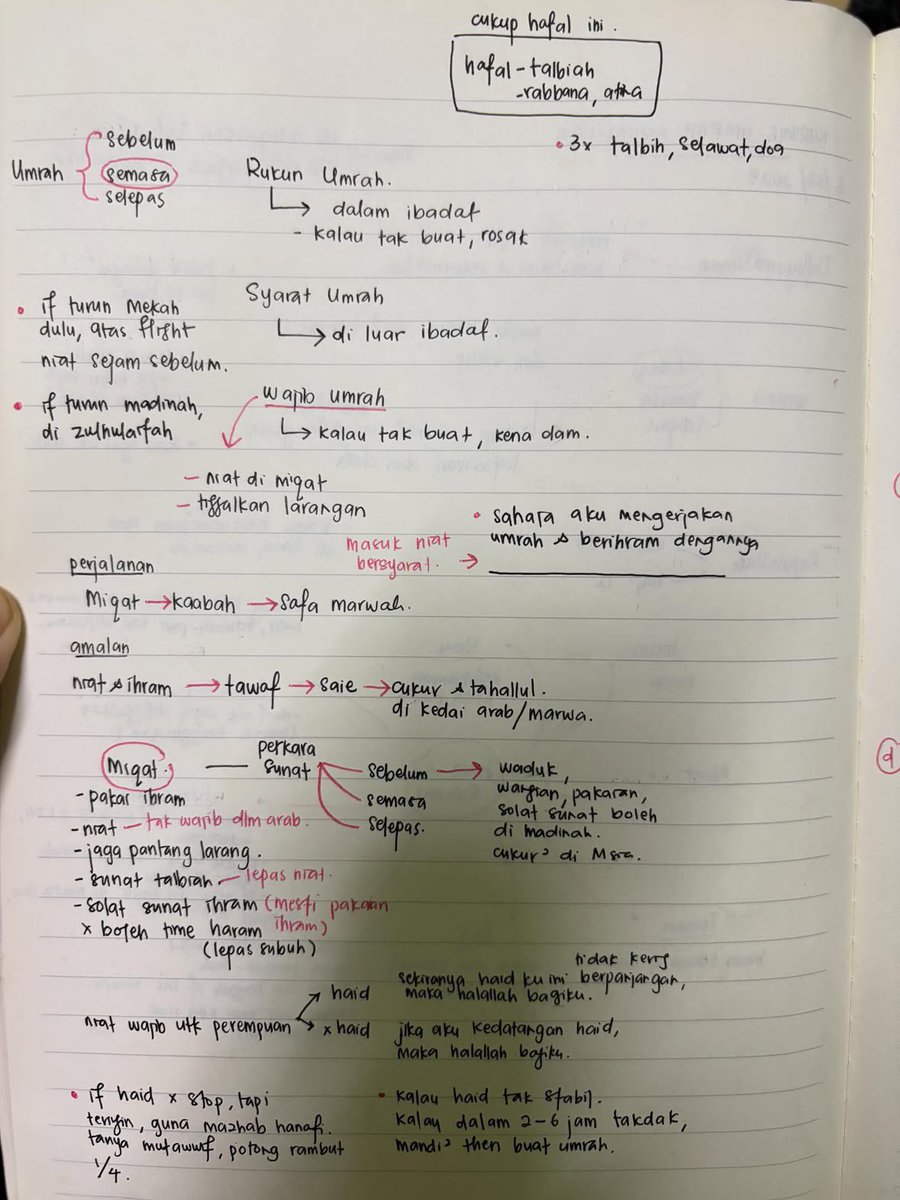 cukup hafal ini.
hafal - talbiah
- rabbana, atina
• 3x talbih, selawat, doa
Umrah
sebelum
semasa
selepas
Rukun Umrah.
dalam ibadat
- kalau tak buat, rosak
Syarat Umrah
di luar ibadat.
• if turun Mekah
dulu, atas flight
niat sejam sebelum.
• if turun madinah,
di zulhulaifah
wajib umrah
kalau tak buat, kena dam.
- niat di miqat
- tinggalkan larangan
• sahaja aku mengerjakan
umrah & berihram dengannya
masuk niat
bersyarat. →
perjalanan
Miqat → kaabah → Safa marwah.
amalan
niat & ihram → tawaf → saie → cukur & tahallul.
di kedai arab/marwa.
Miqat. — perkara
sunat
sebelum → waduk,
wangian, pakaian,
solat sunat boleh
di madinah.
cukur² di Msia.
semasa
selepas.
- pakai ihram
- niat - tak wajib dlm arab.
- jaga pantang larang.
- sunat talbiah - lepas niat.
- solat sunat ihram (mesti pakaian
ihram)
x boleh time haram
(lepas subuh)
niat wajib utk perempuan
haid
sekiranya haid ku ini berpanjangan,
tidak kering
maka halallah bagiku.
x haid
jika aku kedatangan haid,
maka halallah bagiku.
• if haid x stop, tapi
teringin, guna mazhab hanafi.
tanya mutawwif, potong rambut
1/4.
• kalau haid tak stabil.
kalau dalam 2-6 jam takdak,
mandi² then buat umrah.
d